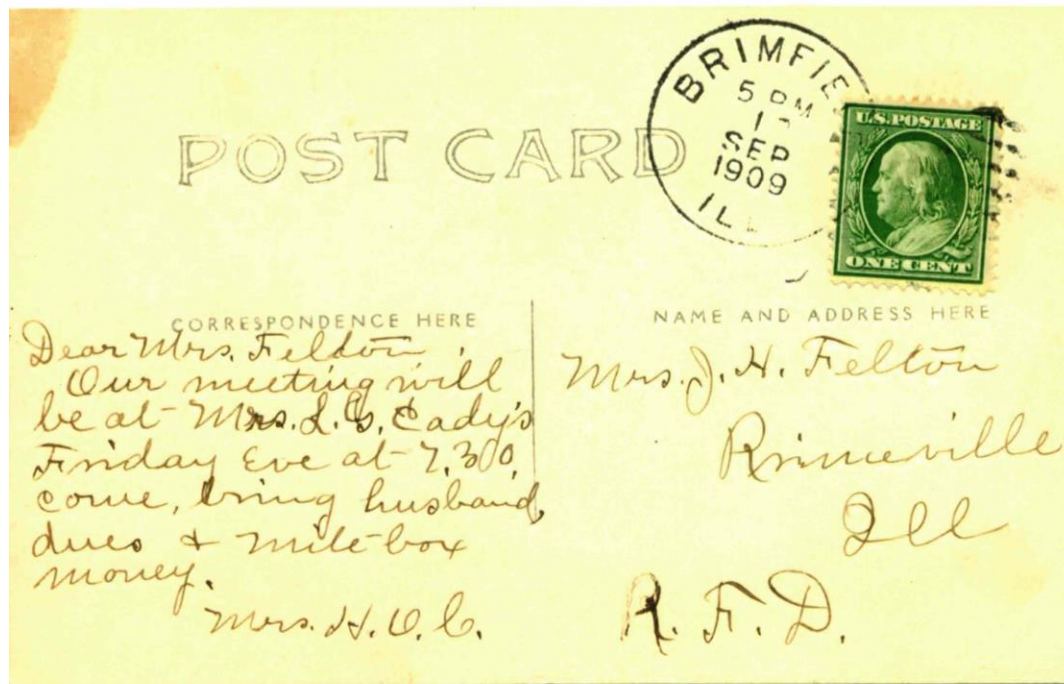 BRIMFIE
5 PM
SEP
1909
ILL
U.S. POSTAGE
ONE CENT
POST CARD
CORRESPONDENCE HERE
NAME AND ADDRESS HERE
Dear Mrs. Felton.
Our meeting will
be at Mrs. L. G. Cady's
Friday Eve at 7,30,
come, bring husband,
dues & mite-box
money.
Mrs. H. O. C.
Mrs. J. H. Felton
Ill
R. F. D.